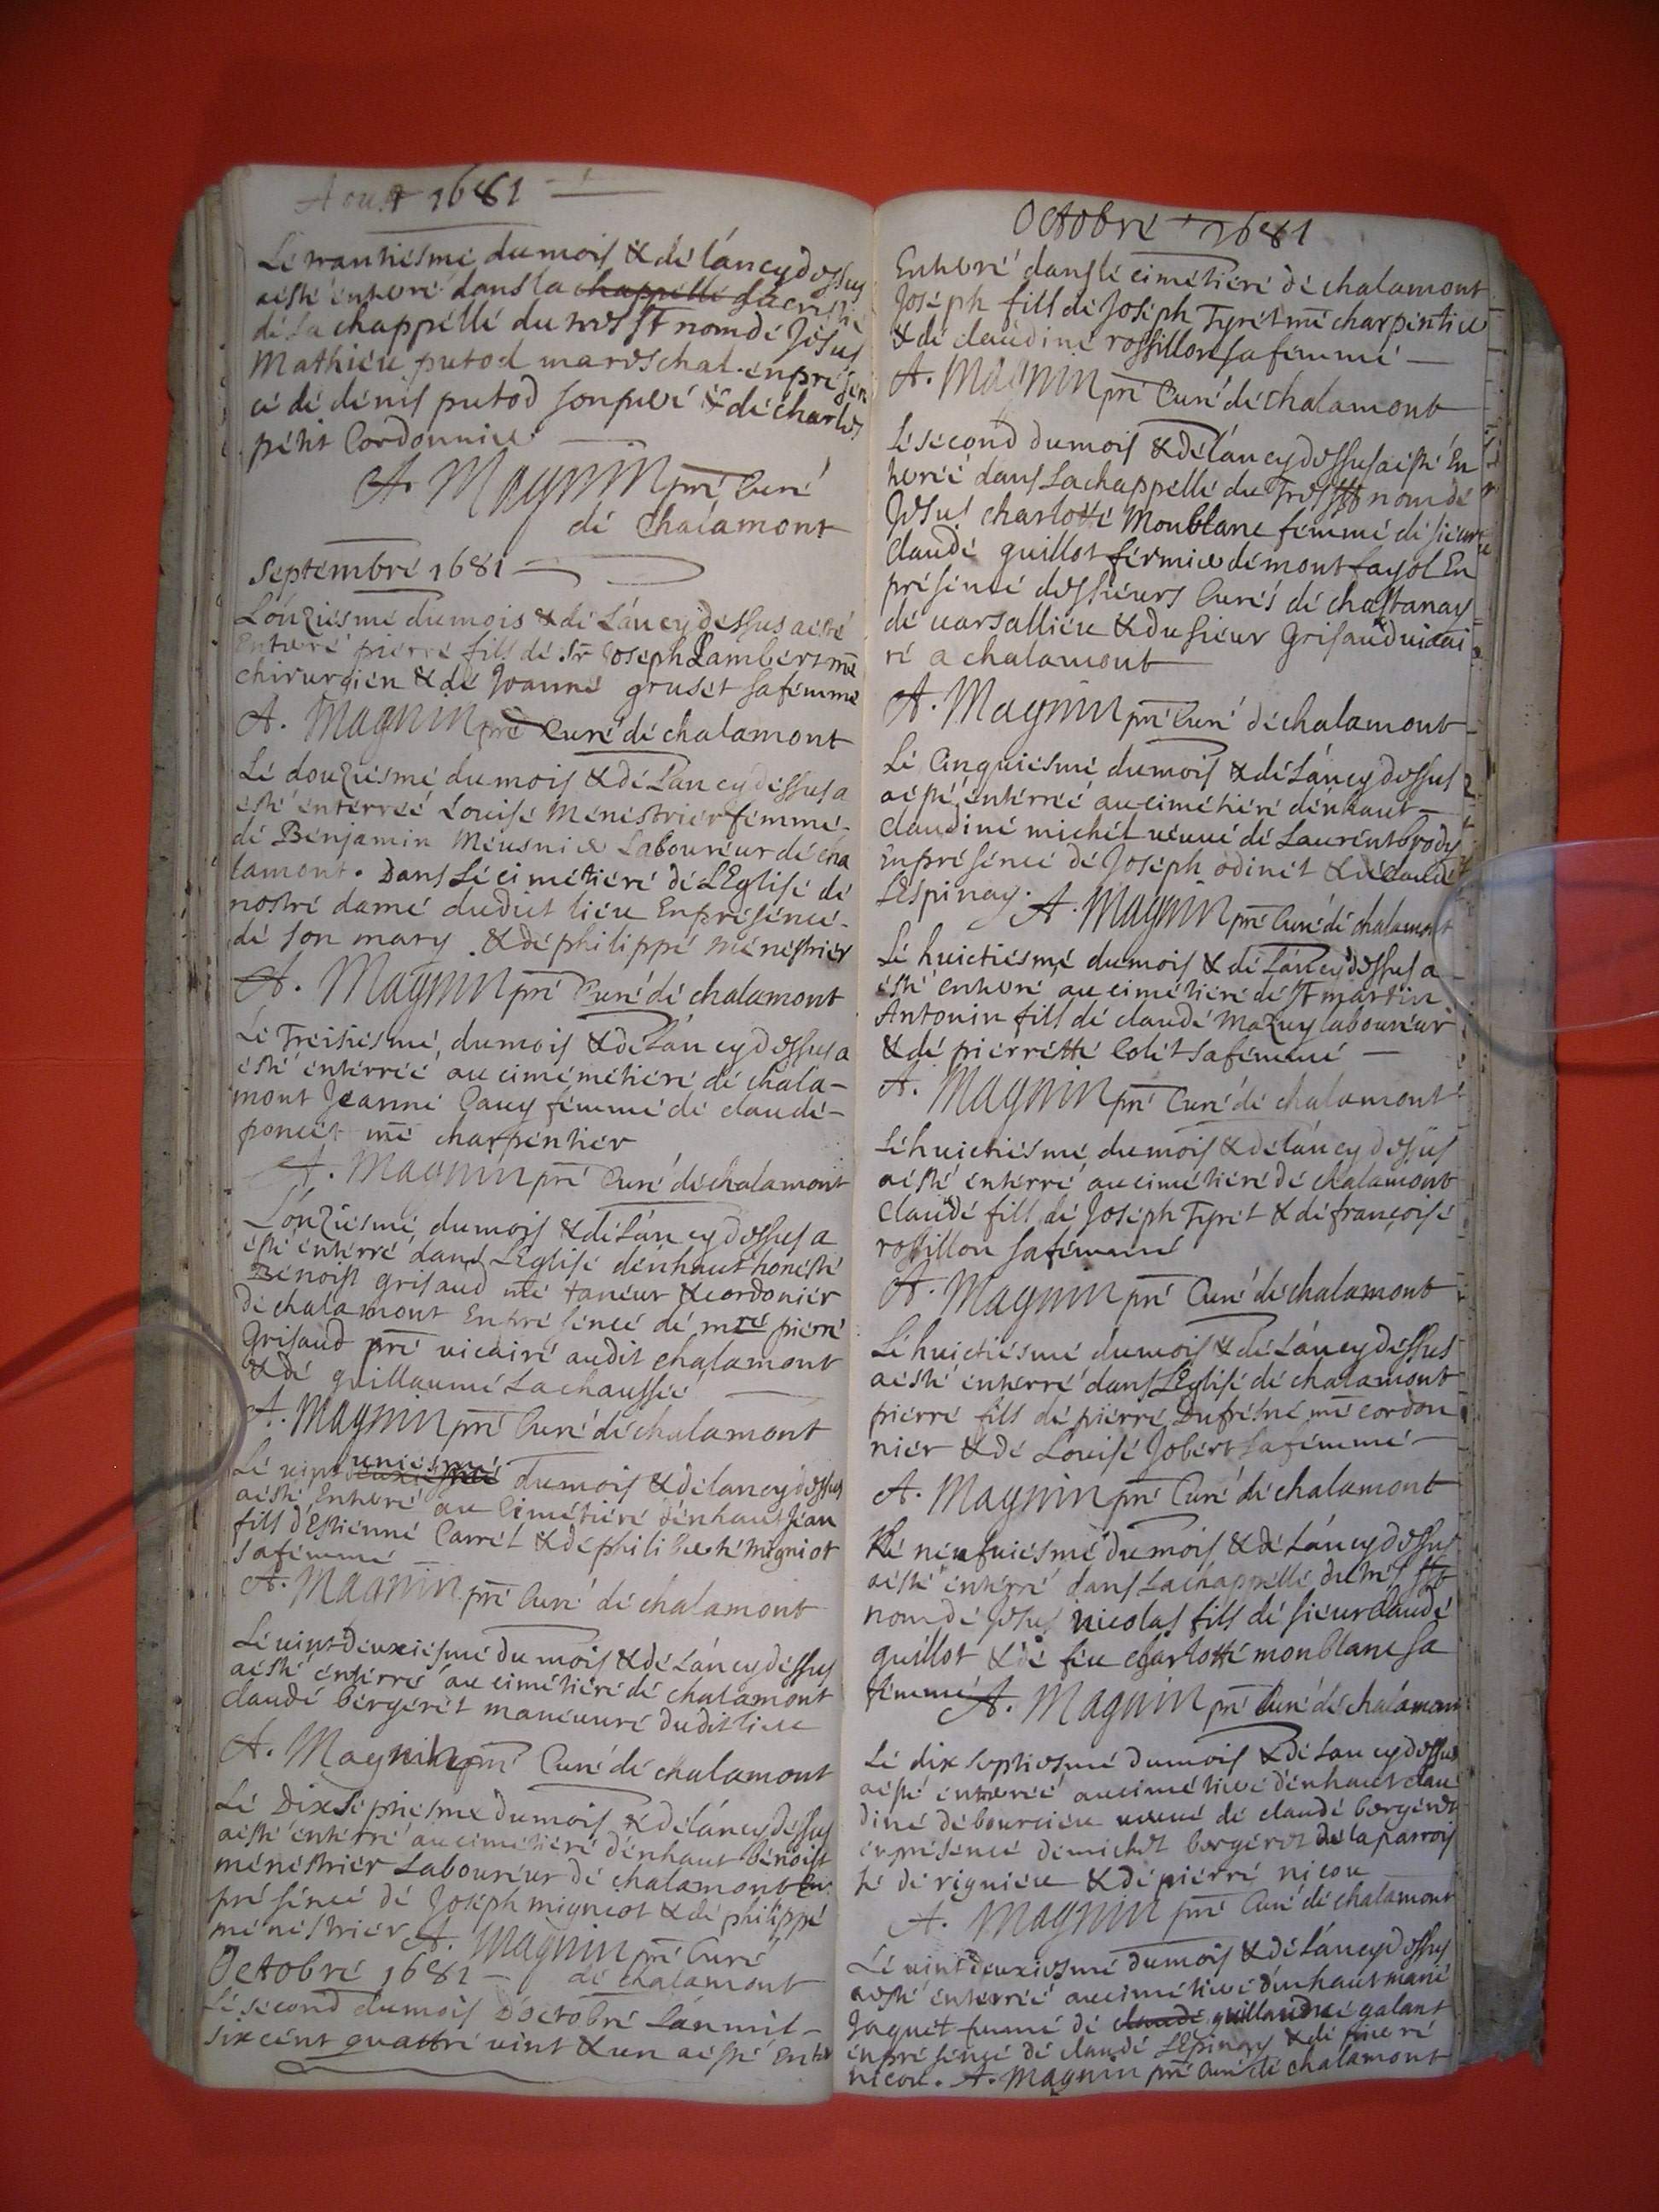 Aoust 1681
Le trantiesmé du mois & dé láncy dessus
aésté énterré dans la chappéllé sacristié
dé la chappéllé du tres st nom dé Jésus
Mathieu putod mareschal. én présen
cé dé dénis putod son pueré & dé charles
pétit Cordonnier
A. Magnin pré Curé
dé Chalamont
Septémbré 1681
L'onziésmé du mois & dé Láncy dessus aésté
Enterré pierré fils dé Sr Joseph Lambért mé
chirurgien & dé Joanné grusét sa fémme
A. Magnin pré Curé dé chalamont
Lé douziésmé du mois & dé Láncy dessus a
ésté énterréé Louisé Ménéstriér fémmé
dé Bénjamin Meusnier Labouréur dé cha
lamont. Dans Lé cimétiéré dé L'Eglisé dé
nostré damé dudit liéu En présencé
dé son mary & dé philippé Ménéstriér
A. Magnin pré Curé dé chalamont
Lé Treisiésmé du mois & dé Láncy dessus a
ésté énterréé au cimémétiéré dé chala-
mont Jeanné Cauy fémmé dé claudé
poncét mé charpéntiér
A. Magnin pré Curé dé chalamont
L'onziésmé du mois & dé Láncy dessus a
ésté énterré dans L'Eglisé d'énhaut honésté
Bénoist grisaud mé tanéur & cordoniér
dé chalamont En présencé dé mré piérré
Grisaud pré vicairé audit chalamont
& dé guillaumé Lachaussée
A. Magnin pré Curé dé chalamont
Lé vint deuxiesmé uniesmé du mois & dé lancy dessus
aésté Enterré au Cimétiéré d'énhaut Jéan
fils d'Estienné Carrél & dé philiberté migniot
sa fémmé
A. Magnin pré Curé dé chalamont
Lé vint deuxiésmé du mois & dé Láncy dessus
aésté énterré au cimétiéré dé chalamont
claudé bérgérét manéuuré dudit lieu
A. Magnin pré Curé dé chalamont
Lé Dix séptiésmé du mois & dé láncy dessus
aésté énterré au cimétiéré d'énhaut bénoist
ménéstriér Labouréur dé chalamont En
présencé dé Joséph migniot & dé philippé
ménéstriér A. Magnin pré Curé
dé chalamont
Octobré 1681
Lé sécond du mois D'octobré L'án mil
six cént quattré vint & un aésté Enter
Octobré 1681
Enterré dans lé cimétiéré dé chalamont
Joséph fils dé Joséph Tyrét mé charpéntier
& dé claudiné rossillon sa fémmé
A. Magnin pré Curé dé chalamont
Lé sécond du mois & dé láncy dessus aésté En
terréé dans La chappéllé du Tres st nom dé
Jesus charlotté Monblanc fémmé dé sieur
Claudé guillot férmier dé mont fayol En
présencé dessieurs Curés dé chastanay
dé varsalliéu & du siéur Grisaud vicai
ré a chalamont
A. Magnin pré Curé dé chalamont
Lé Cinquiésmé du mois & dé láncy dessus
aésté énterréé au cimétiéré d'énhaut
Claudiné michél véuvé dé Laurént body
En présencé dé Joséph odinét & dé claudé
Léspinay. A. Magnin pré Curé dé chalamont
Lé huictiésmé du mois & dé Láncy dessus a
ésté énterré au cimétiéré dé st martin
Antonin fils dé claudé Mazuy labouréur
& dé piérrétté Colét sa fémmé
A. Magnin pré Curé dé chalamont
Lé huictiésmé du mois & dé láncy dessus
aésté énterré au cimétiéré dé chalamont
claudé fils dé Joséph Tyrét & dé françoisé
rossillon sa fémmé
A. Magnin pré Curé dé chalamont
Lé huictiésmé du mois & dé Láncy dessus
aésté énterré dans L'Eglisé dé chalamont
piérré fils dé piérré Dufrésné mé cordon
niér & dé Louisé Jobért sa fémmé
A. Magnin pré Curé dé chalamont
Lé néufuiésmé du mois & dé láncy dessus
aésté énterré dans La chappéllé du trés st
nom dé Jesus nicolas fils dé siéur claudé
guillot & dé féu charlotté monblanc sa
fémmé A. Magnin pré Curé dé chalamon
Lé dix septiesmé du mois & dé Láncy dessus
aésté énterréé au cimétiéré d'énhaut clau
diné débourciéu véuvé dé claudé bergérét
én présencé dé michél bergérét dé la parrois
sé dé rigniéu & dé piérré nicou
A. Magnin pré Curé dé chalamont
Lé vint deuxiesmé du mois & dé láncy dessus
aésté énterréé au cimétiéré d'énhaut marié
Jaquét fémmé dé claudé guillaumé galant
én présencé dé claudé Lépinay & dé piérré
nicou. A. Magnin pré Curé dé chalamont